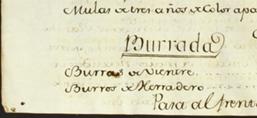 Mulas de tres años de Color apa
Burrada
Burras de Vientre
Burros de Herradero
Pasa al frente